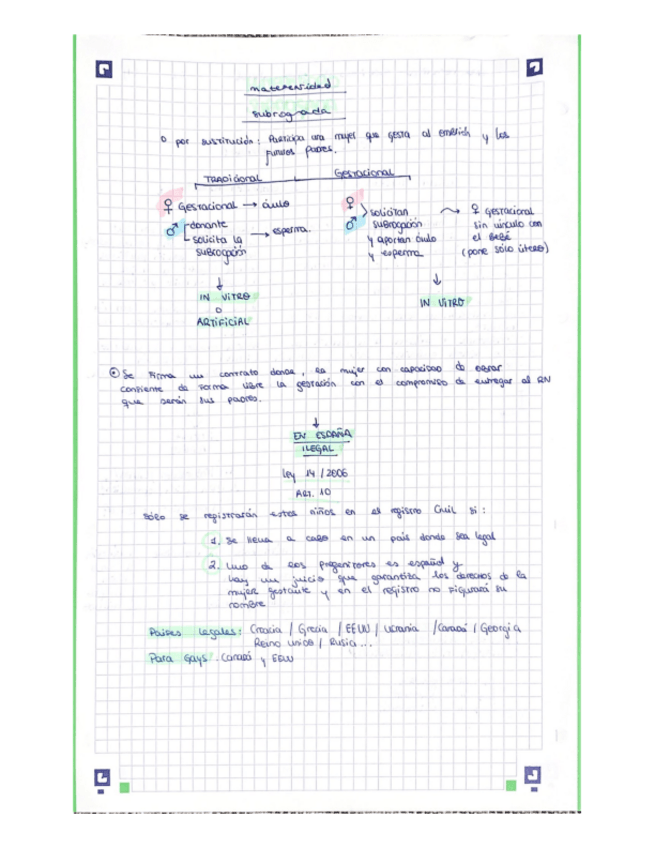 maternidad
subrogada
o por sustitución: Participa una mujer que gesta al embrión y los
futuros padres.
TRADICIONAL Gestacional
♀ Gestacional → óvulo
♂ donante
solicita la → esperma.
subrogación
↓
IN VITRO
O
ARTIFICIAL
♀
♂ solicitan
subrogación
y aportan óvulo
y esperma
♀ gestacional
sin vínculo con
el BEBÉ
(pone sólo útero)
↓
IN VITRO
Se firma un contrato donde, la mujer con capacidad de obrar
consiente de forma libre la gestación con el compromiso de entregar al RN
que serán sus padres.
↓
EN ESPAÑA
ILEGAL
Ley 14/2006
ART. 10
sólo se registrarán estos niños en el registro Civil si:
1. Se lleva a cabo en un país donde sea legal
2. Uno de los progenitores es español y
hay un juicio que garantiza los derechos de la
mujer gestante y en el registro no figurará su
nombre
Países legales: Croacia / Grecia / EEUU / Ucrania / Canadá / Georgia
Reino Unido / Rusia ...
Para Gays: Canadá y EEUU